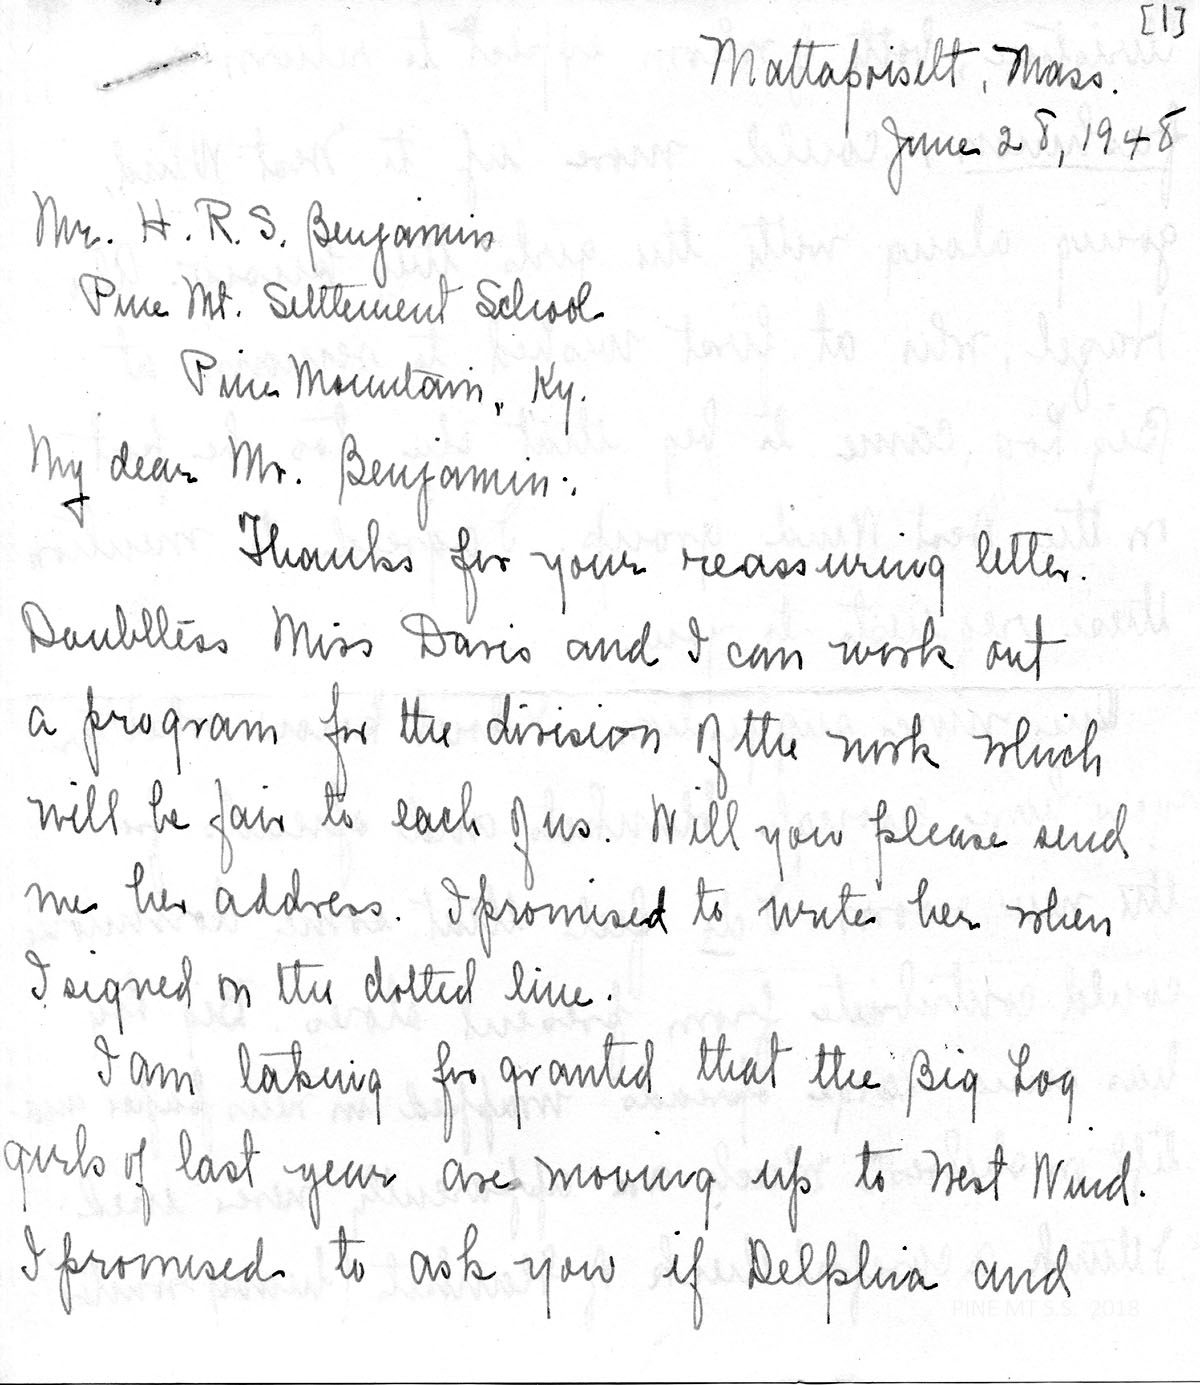 [1]
Mattapoisett, Mass.
June 28, 1948
Mr. H. R. S. Benjamin
Pine Mt. Settlement School
Pine Mountain, Ky.
My dear Mr. Benjamin:
Thanks for your reassuring letter.
Doubtless Miss Davis and I can work out
a program for the division of the work which
will be fair to each of us. Will you please send
me her address. I promised to write her when
I signed on the dotted line.
I am taking for granted that the Big Log
girls of last year are moving up to West Wind.
I promised to ask you if Delphia and
PINE MT S.S. 2018